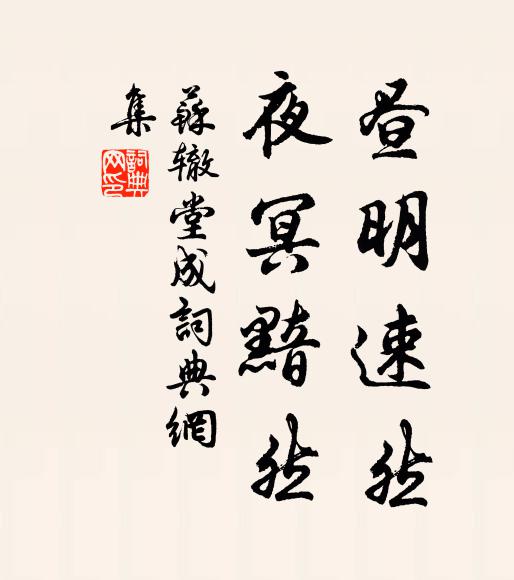 昼明速然
夜冥黯然
蘇辙堂成詞典網
集
詞典
网印